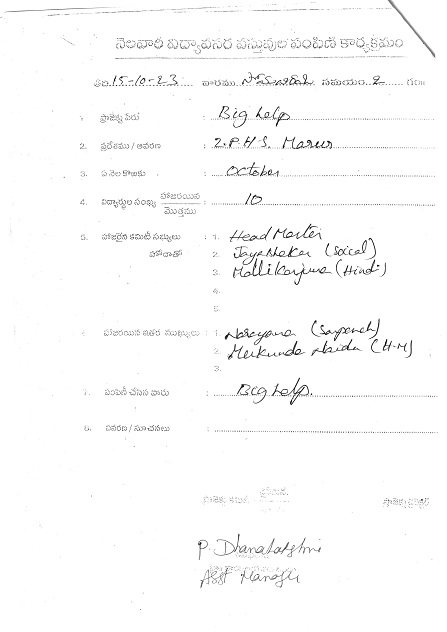 నెలవారి విద్యావసర వస్తువుల పంపిణి కార్యక్రమం
తేది 15-10-23 వారము సమయం 2 గం॥
1. ప్రాజెక్టు పేరు : Big help
2. ప్రదేశము / ఆవరణ : Z.P.H.S. Marur
3. ఏ నెల కొఱకు : October
4. విద్యార్థుల సంఖ్య హాజరయిన / మొత్తము : 10
5. హాజరైన కమిటీ సభ్యులు : 1. Head Master
హోదాతో 2. Jayashekar (Soical)
3. Mallikarjuna (Hindi)
4.
5.
6. హాజరయిన ఇతర ముఖ్యులు : 1. Narayana (Sarpench)
2. Naidu (H.M)
3.
7. పంపిణీ చేసిన వారు : Big help.
8. వివరణ / సూచనలు :
P. Dhanalakshmi
Asst Manager